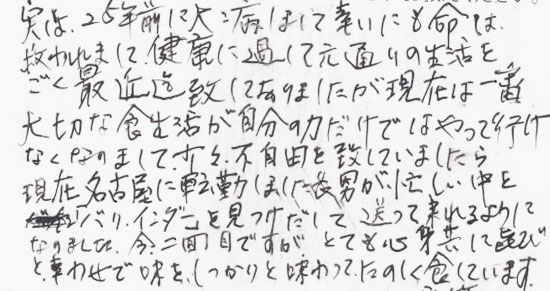 実は、25年前に大病しまして幸いにも命では
救われまして、健康に過して元通りの生活を
ごく最近迄致しておりましたが現在は一番
大切な食生活が自分の力だけではやって行け
なくなりまして、少々不自由を致していましたら
現在名古屋に転勤しました長男が、忙しい中を
バリ、インダーを見つけだして送って来れるように
なりました。今、二回目ですが とても心身共に喜び
と、幸わせで味を、しっかりと味わって、たのしく食しています。